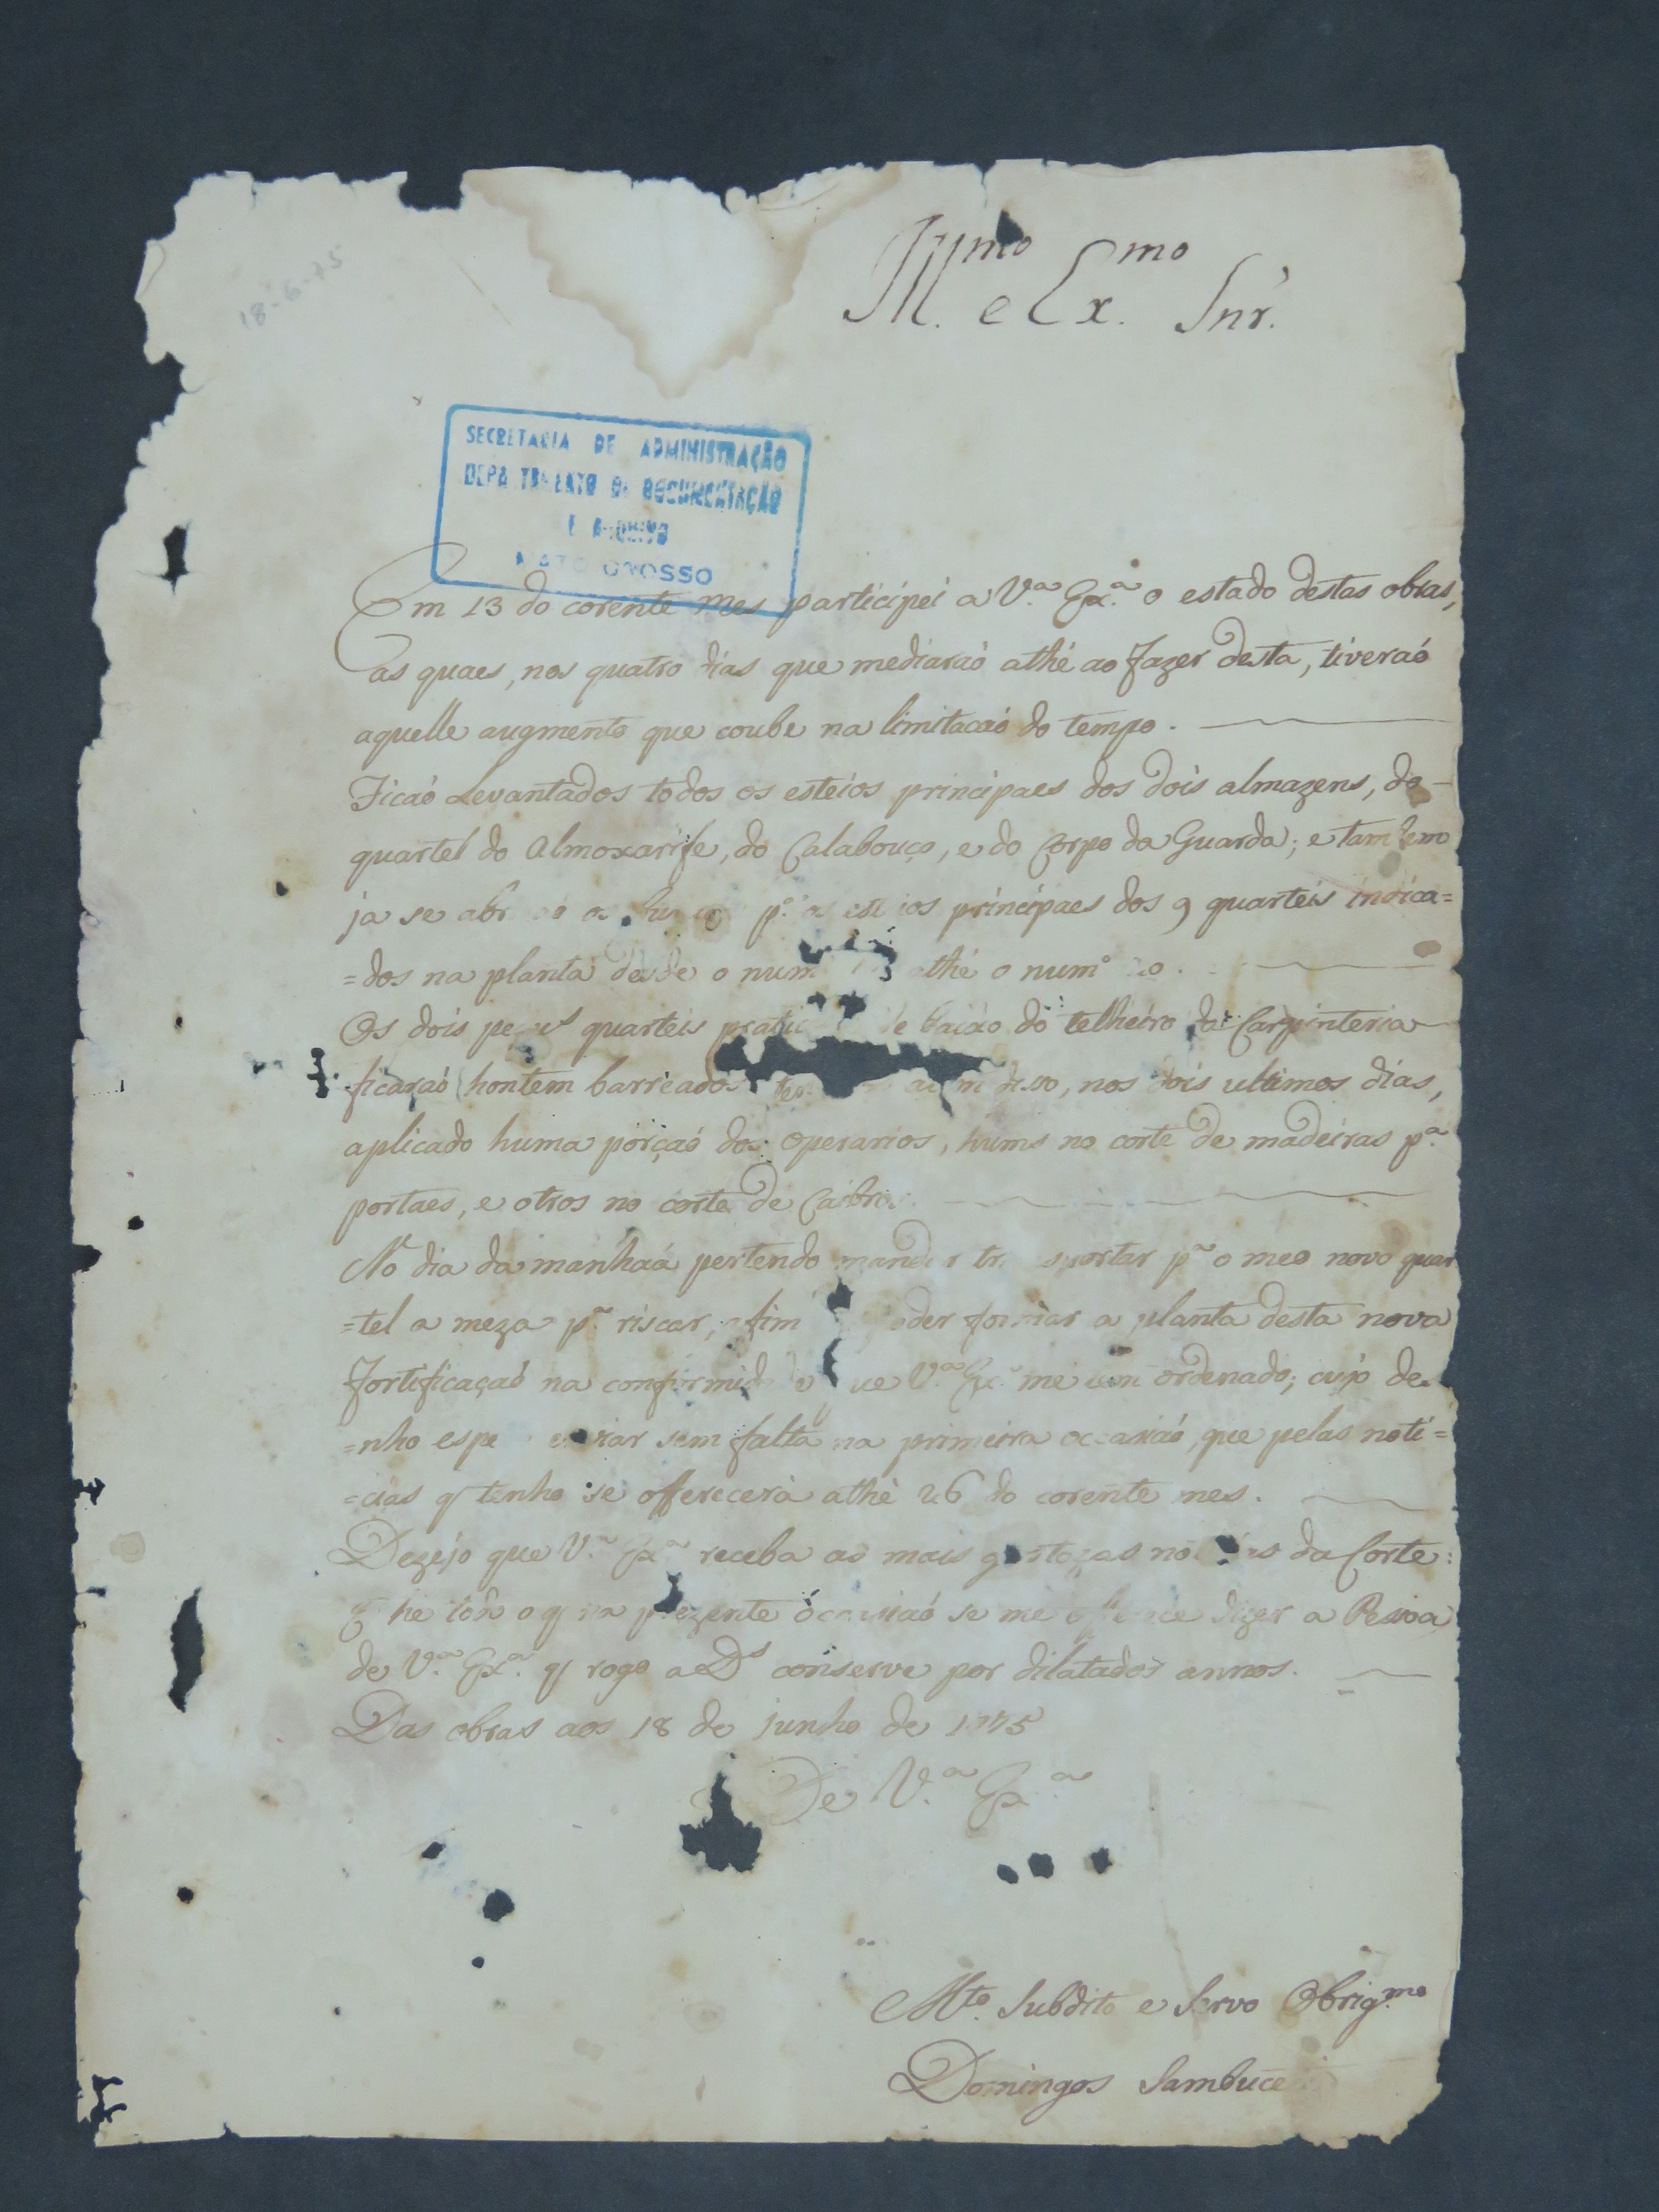 Ill.mo e Ex.mo Snr.
18-6-75
SECRETARIA DE ADMINISTRAÇÃO
DEPARTAMENTO DE DOCUMENTAÇÃO
E ARQUIVO
MATO GROSSO
Em 13 do corente mes participei a V.a Ex.a o estado destas obras,
as quaes, nos quatro dias que mediaraó athé ao fazer desta, tiveraó
aquelle augmento que coube na limitacaó do tempo.
Ficaó Levantados todos os esteios principaes dos dois almazens, do
quartel do Almoxarife, do Calabouço, e do Corpo da Guarda; e tambem
ja se abr os p.a os esteios principaes dos 9 quarteis indica=
=dos na planta desde o num athé o num.o
Os dois quarteis de baixo do telheiro da Carpinteria
ficaraó hontem barreados disso, nos dois ultimos dias,
aplicado huma porçaó dos operarios, hums no corte de madeiras p.a
portaes, e otros no corte de Caibros.
No dia da manhaá pertendo mandar transportar p.a o meo novo quar
=tel a meza p.a riscar, afim poder formar a planta desta nova
fortificaçaó na conformidade que V.a Ex.a me tem ordenado; cujo de
=nho espe enviar sem falta na primeira occasiaó, que pelas noti=
=cias q tenho se offerecerà athè 26 do corente mes.
Dezejo que V.a Ex.a receba as mais gostozas noticias da Corte:
E he todo o q na prezente occasiaó se me offerece dizer a Pessoa
de V.a Ex.a q rogo a Ds conserve por dilatados annos.
Das obras aos 18 de junho de 1775
De V.a Ex.a
M.to Subdito e Servo Obrig.mo
Domingos Sambuce